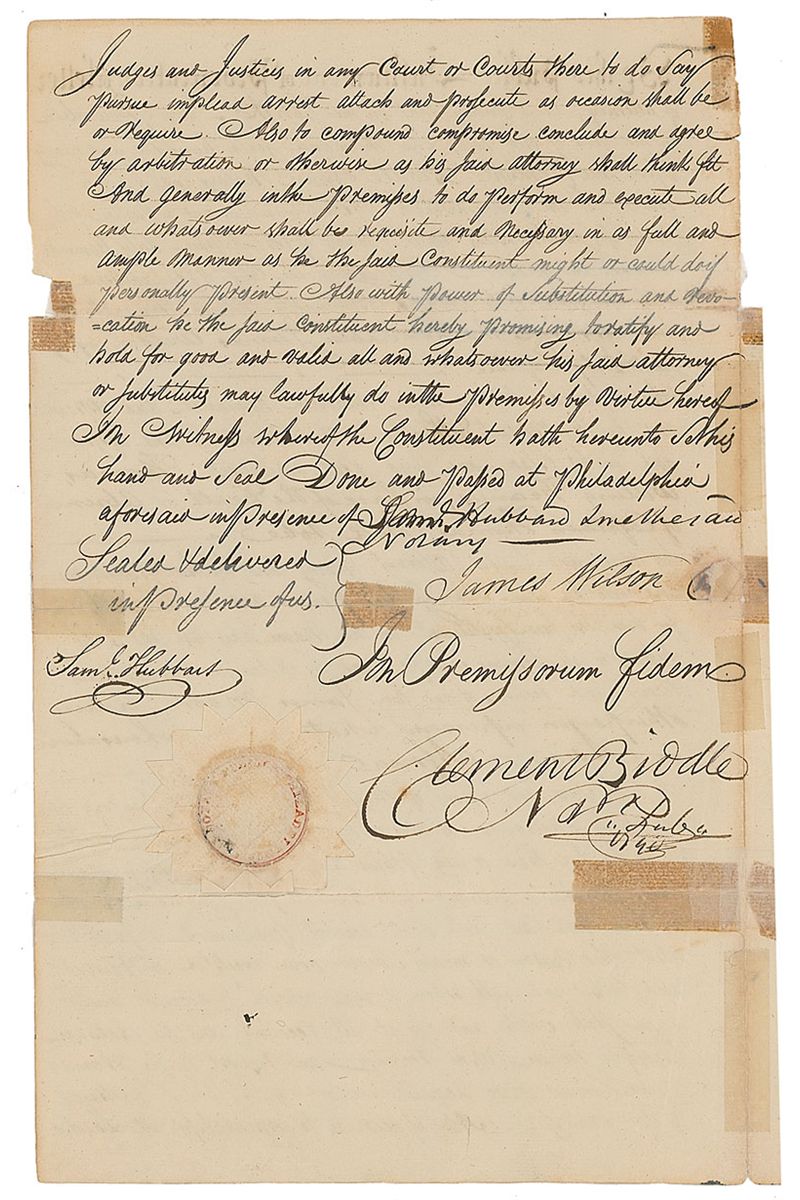 Judges and Justices in any Court or Courts there to do Say
Pursue implead arrest attach and prosecute as occasion shall be
or require. Also to compound compromise conclude and agree
by arbitration or otherwise as his said attorney shall think fit
And generally in the Premisses to do perform and execute all
and whatsoever shall be requisite and Necessary in as full and
ample Manner as he the said Constituent might or could do if
personally Present. Also with power of Substitution and revo-
=cation he the said Constituent hereby promising to ratify and
hold for good and valid all and whatsoever his said attorney
or substitutes may lawfully do in the Premisses by Virtue hereof
In Witness whereof the Constituent hath hereunto Set his
hand and Seal Done and Passed at Philadelphia
aforesaid in presence of Saml Hubbard & me the said
Notary
Sealed & delivered
in presence of us.
James Wilson
Saml Hubbart
In Premissorum fidem
Clement Biddle